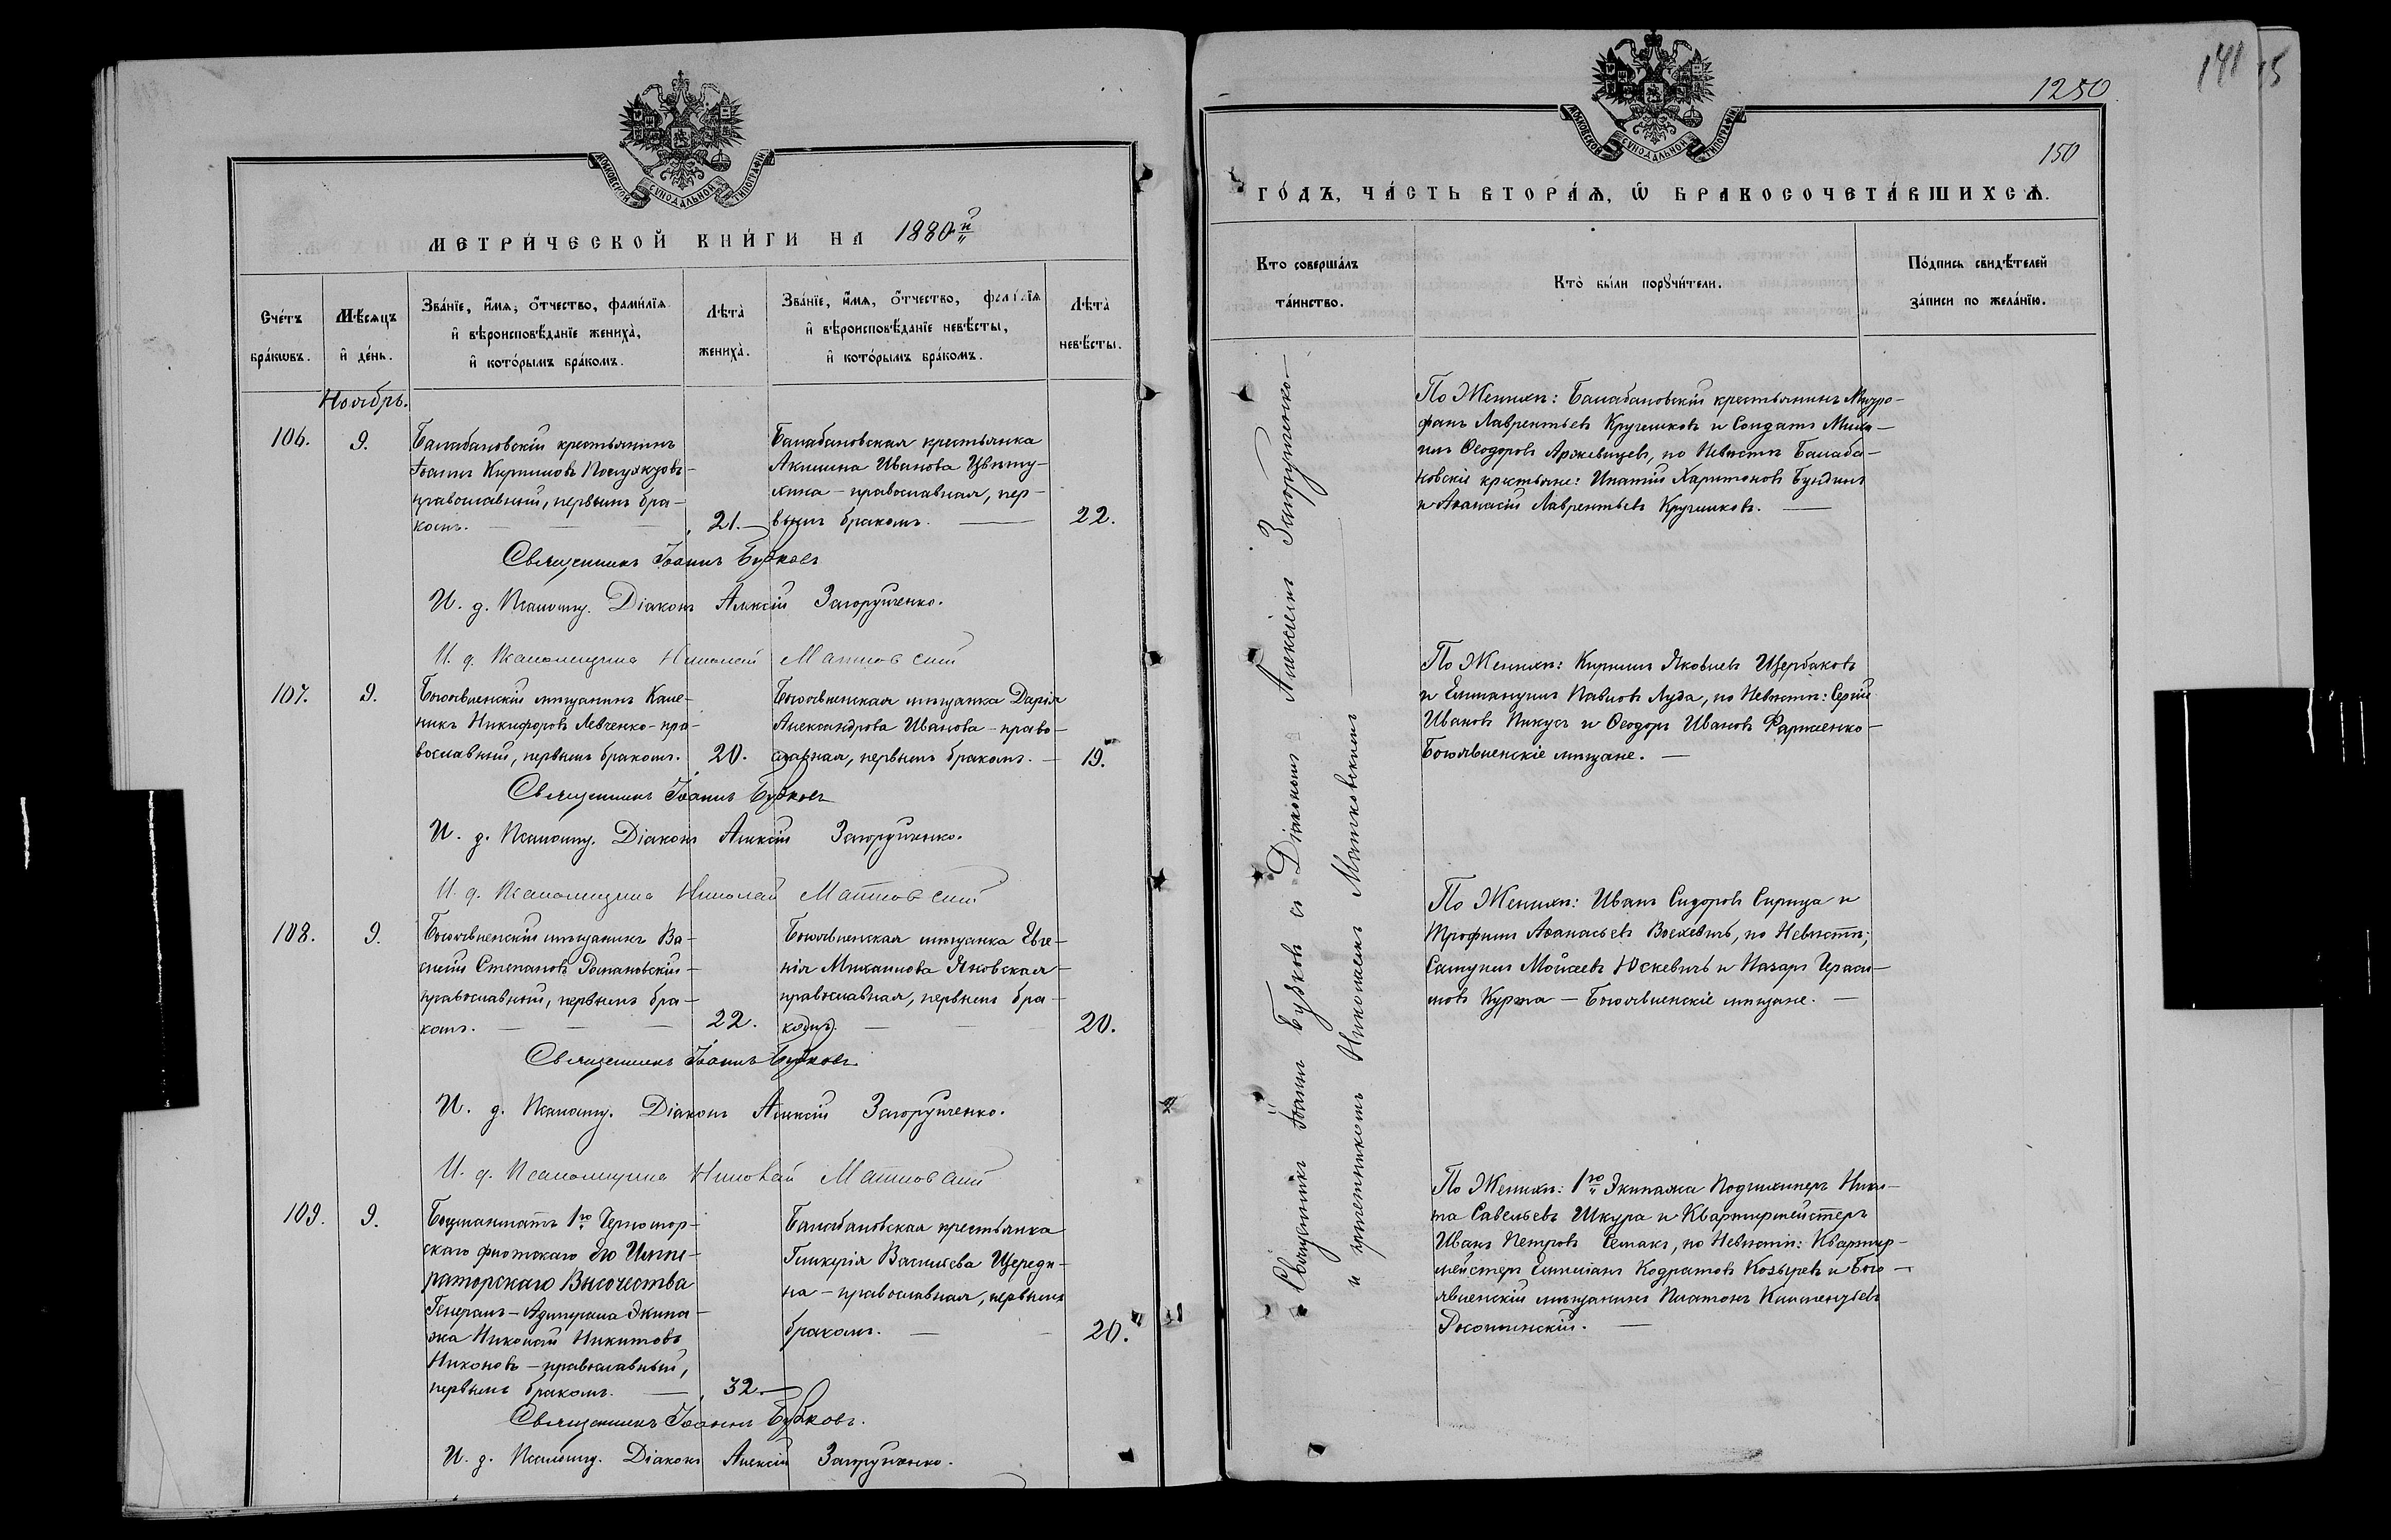 МОСКОВСКОЙ СУНОДАЛЬНОЙ ТИПОГРАФІИ
МЕТРИ́ЧЕСКОЙ КНИ́ГИ НА 1880й
Сче́тъ бра́кѡвъ.
Мѣ́сяцъ и҆ де́нь.
Зва́нїе, и҆́мѧ, ѻ҆́тчество, фами́лїѧ
и҆ вѣроисповѣ́данїе жениха̀,
и҆ кото́рымъ бра́комъ.
Лѣ́та̀ жениха̀.
Зва́нїе, и҆́мѧ, ѻ҆́тчество, фами́лїѧ
и҆ вѣроисповѣ́данїе невѣ́сты,
и҆ кото́рымъ бра́комъ.
Лѣ́та̀ невѣ́сты.
Ноябрь.
106.
9.
Балабановскій крестьянинъ
Іоаннъ Кирилловъ
православный, первымъ бра-
комъ.
21.
Балабановская крестьянка
Акилина Иванова Цвиту-
хина - православная, пер-
вымъ бракомъ.
22.
Священникъ Іоаннъ Будковъ
И. д. Псаломщ. Діаконъ Алексій Загоруйченко.
И. д. Псаломщика Николай Матковскій
107.
9.
Богоявленскій мѣщанинъ Кале-
никъ Никифоровъ Левченко - пра-
вославный, первымъ бракомъ.
20.
Богоявленская мѣщанка Дарія
Александрова Иванова - право-
славная, первымъ бракомъ. -
19.
Священникъ Іоаннъ Будковъ
И. д. Псаломщ. Діаконъ Алексій Загоруйченко.
И. д. Псаломщика Николай Матковскій
108.
9.
Богоявленскій мѣщанинъ Ва-
силій Степановъ Романовскій -
православный, первымъ бра-
комъ.
22.
Богоявленская мѣщанка Евге-
нія Михаилова Яновская -
православная, первымъ бра-
комъ.
20.
Священникъ Іоаннъ Будковъ
И. д. Псаломщ. Діаконъ Алексій Загоруйченко.
И. д. Псаломщика Николай Матковскій
109.
9.
Боцманматъ 1го Черномор-
скаго флотскаго Его Импе-
раторскаго Высочества
Генералъ-Адмирала Экипа-
жа Николай Никитовъ
Никоновъ - православный,
первымъ бракомъ.
32.
Балабановская крестьянка
Гликерія Васильева Щереди-
на - православная, первымъ
бракомъ.
20.
Священникъ Іоаннъ Будковъ.
И. д. Псаломщ. Діаконъ Алексій Загоруйченко.
141
15
1250.
150
МОСКОВСКОЙ СУНОДАЛЬНОЙ ТИПОГРАФІИ
ГО́ДЪ, ЧА́СТЬ ВТОРА́Ѧ, Ѽ БРАКОСОЧЕТА́ВШИХСѦ.
Кто соверша́лъ та́инство.
Кто̀ бы́ли порꙋчи́тели.
По́дпись свидѣ́телей за́писи по жела́нїю.
Священникъ Іоаннъ Будковъ съ Діакономъ Алексіемъ Загоруйченко -
и причетникомъ Николаемъ Матковскимъ
По Женихѣ: Балабановскій крестьянинъ Митро-
фанъ Лаврентьевъ Кругликовъ и Солдатъ Миха-
илъ Ѳеодоровъ Аржевицевъ, по Невѣстѣ Балаба-
новскіе крестьяне: Ипатій Харитоновъ Бундинъ
и Аѳанасій Лаврентьевъ Кругликовъ.
По Женихѣ: Кириллъ Яковлевъ Щербаковъ
и Еммануилъ Павловъ Луда, по Невѣстѣ: Сергій
Ивановъ Пикусъ и Ѳеодоръ Ивановъ
Богоявленскіе мѣщане. -
По Женихѣ: Иванъ Сидоровъ Сирица и
Трофимъ Аѳанасьевъ по Невѣстѣ;
Самуилъ Мойсеевъ Юскевичъ и Назаръ Гераси-
мовъ Курта - Богоявленскіе мѣщане. -
По Женихѣ: 1го Экипажа Подшкиперъ Ники-
та Савельевъ Шкура и Квартирмейстеръ
Иванъ Петровъ Семакъ, по Невѣстѣ: Квартир-
мейстеръ Емиліанъ Кодратовъ Козыревъ и Бого-
явленскій мѣщанинъ Платонъ Климентьевъ